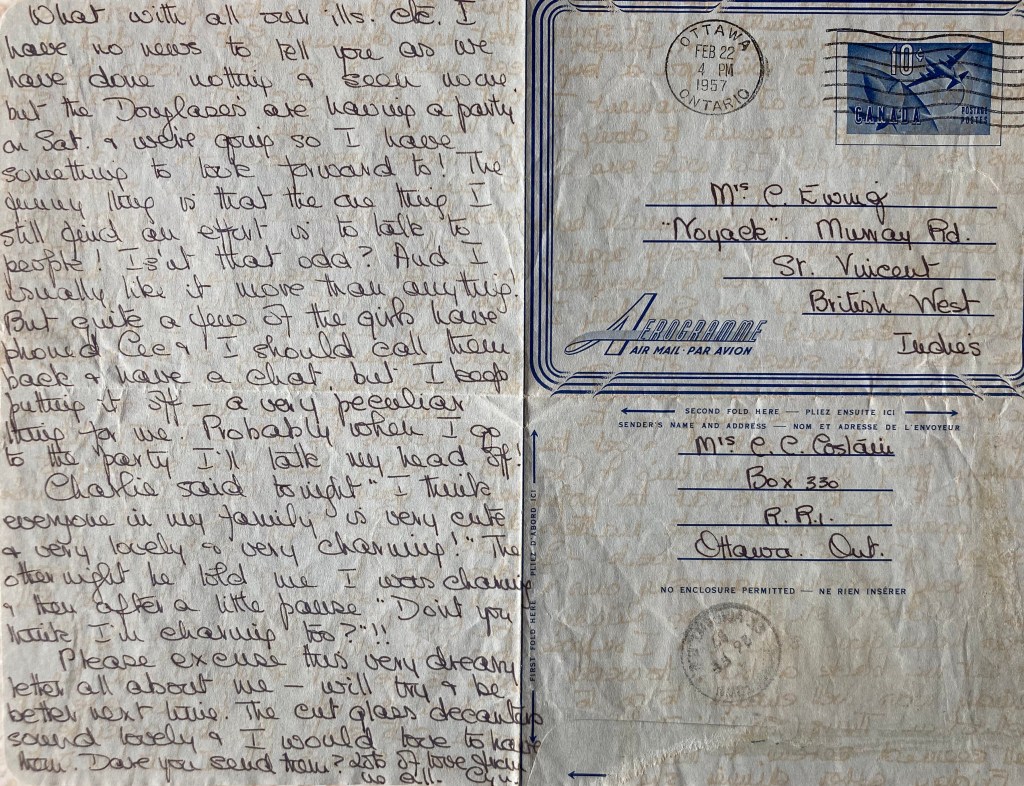 What with all our ills. etc. I
have no news to tell you as we
have done nothing & seen no one
but the Douglases are having a party
on Sat. & we're going so I have
something to look forward to! The
funny thing is that the one thing I
still find an effort is to talk to
people! Isn't that odd? And I
usually like it more than anything.
But quite a few of the girls have
phoned Cee & I should call them
back & have a chat, but I keep
putting it off – a very peculiar
thing for me. Probably when I go
to the party I'll talk my head off!
Charlie said tonight "I think
everyone in my family is very cute
& very lovely & very charming!" The
other night he told me I was charming
& then after a little pause "Don't you
think I'm charming too?"!!
Please excuse this very dreary
letter all about me – will try & be
better next time. The cut glass decanters
sound lovely & I would love to have
them. Dare you send them? Lots of love from
us all. Cyn.
OTTAWA
FEB 22
4 PM
1957
ONTARIO
10¢
CANADA
POSTAGE
POSTES
Mrs C. Ewing
"Noyack". Murray Rd.
St. Vincent
British West
Indies
AEROGRAMME
AIR MAIL · PAR AVION
← SECOND FOLD HERE — PLIEZ ENSUITE ICI →
SENDER'S NAME AND ADDRESS — NOM ET ADRESSE DE L'ENVOYEUR
Mrs C. C. Costain
Box 330
R.R.1.
Ottawa. Ont.
NO ENCLOSURE PERMITTED — NE RIEN INSÉRER
FIRST FOLD HERE PLIEZ D'ABORD ICI